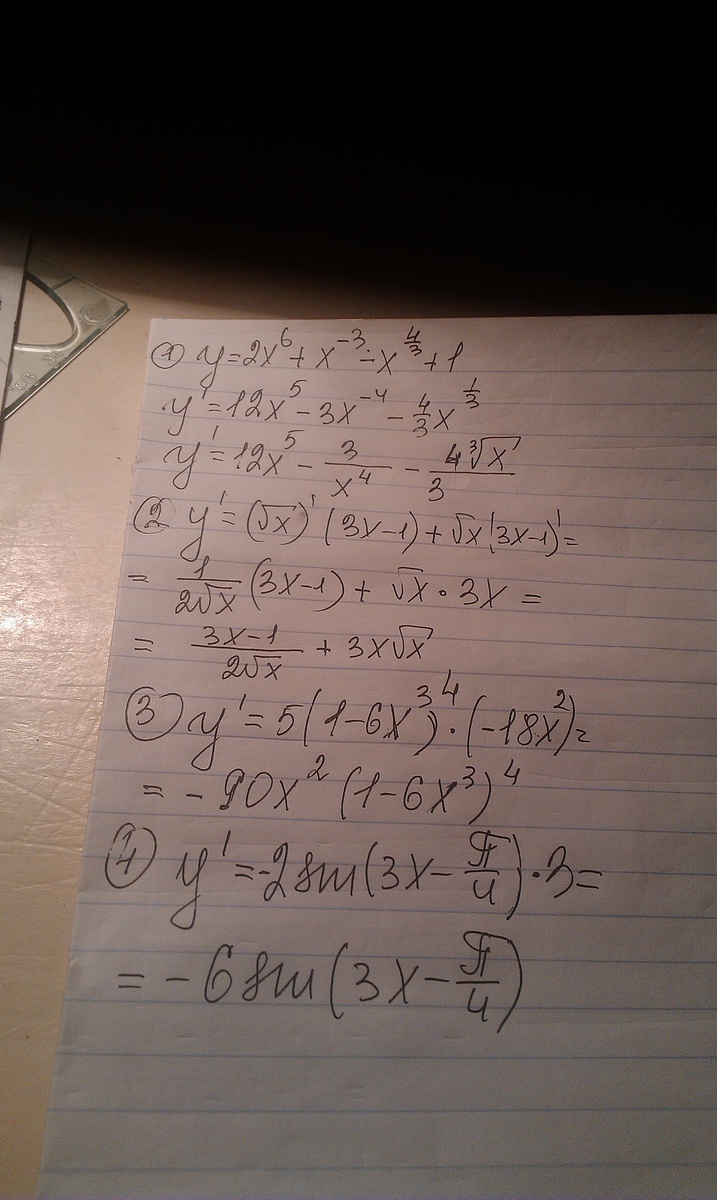 ① y=2x⁶+x⁻³-x^(4/3)+1
y'=12x⁵-3x⁻⁴-4/3x^(1/3)
y'=12x⁵-3/x⁴-4∛x/3
② y'=(√x)'(3x-1)+√x(3x-1)'=
=1/(2√x)(3x-1)+√x·3x=
=(3x-1)/(2√x)+3x√x
③ y'=5(1-6x³)⁴·(-18x²)=
=-90x²(1-6x³)⁴
④ y'=-2sin(3x-π/4)·3=
=-6sin(3x-π/4)